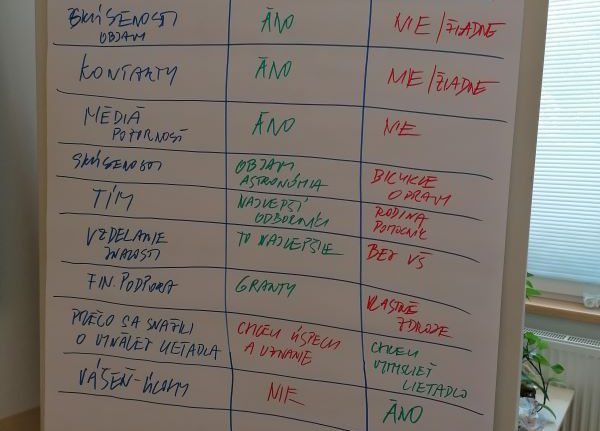 SKÚSENOSTI ÁNO NIE/ŽIADNE
OBJAM
KONTAKTY ÁNO NIE/ŽIADNE
MÉDIÁ ÁNO NIE
POZORNOSŤ
SKÚSENOSTI OBJAM BICYKLE
ASTRONÓMIA OPRAVY
TÍM NAJLEPŠÍ RODINA
ODBORNÍCI POMOCNÍK
VZDELANIE TO NAJLEPŠIE BEZ VŠ
ZNALOSTI
FIN. PODPORA GRANTY VLASTNÉ
ZDROJE
PREČO SA SNAŽILI CHCELI ÚSPECH CHCELI
O VYNÁLEZ LIETADLA A UZNANIE VYMYSLIEŤ
LIETADLO
VÁŠEŇ NIE ÁNO